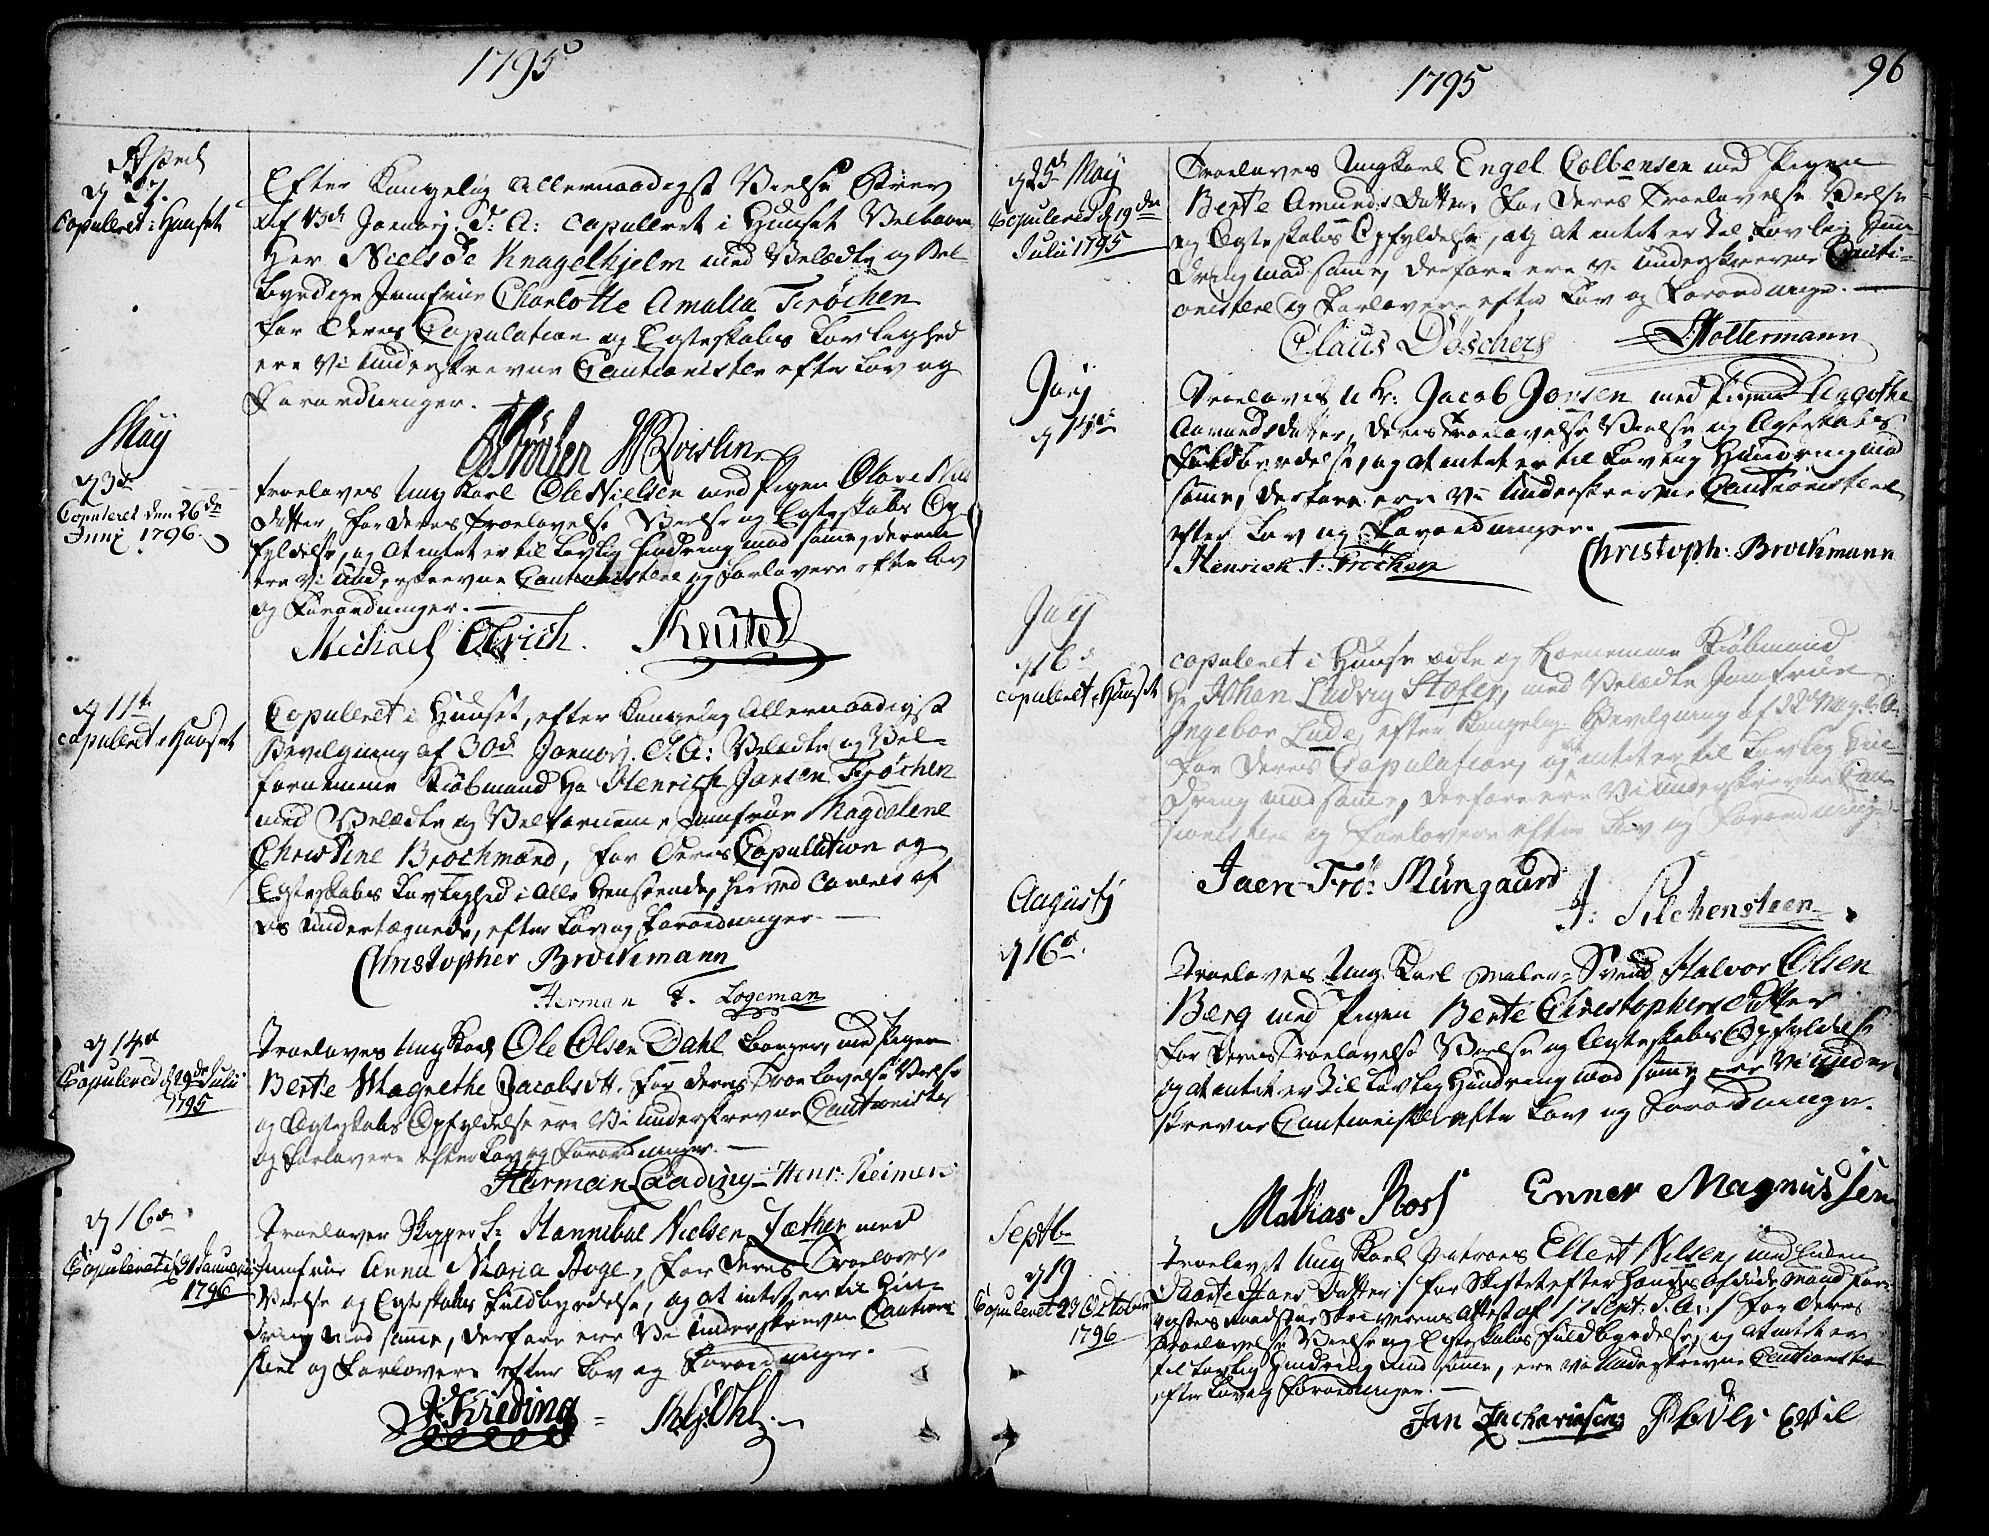 1795
April
d 27.
Copulleret i Huuset
Efter Kongelig Allernaadigst Vielse Brev
Af 13d Januarj. d: A: Copulleret i Huuset Velbaarne
Herr Niels de Knagelhjelm med Velædle og Vel-
byrdige Jomfrue Charlotte Amalia Frøchen
for deres Copulation og Egteskabs Lovlighed
ere Vi underskrevne Cautionister efter Lov og
Forordninger.
May
d 3de
Copuleret den 26de
Junj 1796.
Troeloves Ung Karl Ole Nielsen med Pigen Olave Niels
datter, for deres Troelovelse Vielse og Egteskabs Op-
fyldelse, og at intet er til Lovlig Hindring mod samme, derom
ere vi underskrevne Cautionistere og Forlovere efter Lov
og Forordninger.
Michael Olrich. Reutel
d 11te
Copuleret i Huuset
Copulleret i Huuset, efter Kongelig Allernaadigst
Bevilgning af 30d Januarj. d. A: Velædle og Vel-
fornemme Kiøbmand Hr Henrich Jansen Frøchen
med Velædle og Velfornemme Jomfrue Magdalene
Christine Brochmand, for deres Copulation og
Egteskabs Lovlighed i Alle Henseende, herved Caveres af
os undertegnede, efter Lov og Forordninger.
Christopher Brochmann
Herman F. Logeman
d 14de
Copulered d 19de Julii
1795
Troeloves Ung Karl Ole Olsen Dahl Borger, med Pigen
Berte Magrethe Jacobsdtt. for deres Troelovelse Vielse
og Ægteskabs Opfyldelse ere Vi underskrevne Cautionister
og Forlovere efter Lov og Forordninger.
Herman Laading Henr: Reimers
d 16de
Copuleret d 31 Januarii
1796
Troelover Skipper Sr. Hannibal Nielsen Fæther med
Jomfrue Anna Maria Hoge, for deres Troelovelse
Vielse og Egteskabs Fuldbyrdelse, og at intet er til Hin-
dring mod samme, derfore ere Vi underskrevne Cautioni
stere og Forlovere efter Lov og Forordninger.
Krøding
1795
96
d 25d May
Copulered d 19de
Julii 1795
Troeloves Ung Karl Engel Colbensen med Pigen
Berte Amunds Datter, for deres Troelovelse Vielse
og Egteskabs Opfyldelse, og at intet er til Lovlig Hin-
dring mod samme, derfore ere vi underskrevne Cauti-
onistere og Forlovere efter Lov og Forordninger.
Claus Döschers Holtermann
Juny
d 14de
Troeloves U K: Jacob Jonsen med Pigen Aagothe
Aamundsdatter, deres Troelovelse Vielse og Egteskabs
Fuldbyrdelse, og at intet er til Lovlig Hindring mod
samme, derfore ere Vi underskrevne Cautionistere
efter Lov og Forordninger.
Henrich J: Fröchen Christoph: Brochmann
July
d 16d
Copuleret i Huuset
Copuleret i Huuset ædle og fornemme Kiøbmand
Hr Johan Ludvig Stofer, med Velædle Jomfrue
Ingebor Lude, efter Kongelig Bevilgning af 22d May d. A.
for deres Copulation, og at intet er til Lovlig Hin-
dring mod samme, derfore ere Vi underskrevne Cau
tionister og Forlovere efter Lov og Forordninger
Jaen Frö: Müngaard
Augusty
d 16d.
Troeloves Ung Karl Maler-Svend Halvor Olsen
Berg med Pigen Berte Christophersdatter
for deres Troelovelse Vielse og Ægteskabs Opfyldelse
og at intet er til Lovlig Hindring mod samme ere Vi under
skrevne Cautionister efter Lov og Forordninger.
Mathias Ross Enner Magnussen
Septbr
d 19
Copuleret 23 October
1796
Troelovet Ung Karl Matroes Ellert Nilsen, med Enken
Daarte Hans Datter /: for Skiftet efter hendes afdøde Mand fore-
vises Raadstue Skriverens Attest af 17 Sept: d. A: / for deres
Troelovelse Vielse og Egteskabs Fuldbyrdelse og at intet er
til Lovlig Hindring mod samme, ere vi underskrevne Cautionister
efter Lov og Forordninger.
Jan Zachariasen Peder Evil